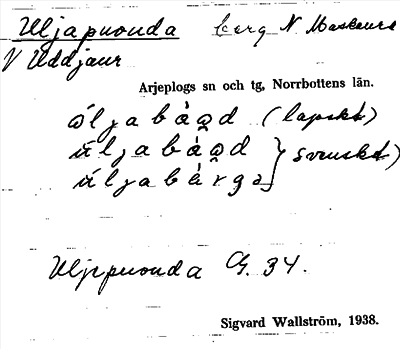 Uljapuonda berg N Maskaure
V Uddjaur
Arjeplogs sn och tg, Norrbottens län.
ol̄jabȧo̭d (lapskt)
ul̄jabȧo̭d } svenskt)
ul̄jabȧrgə
Uljepuouda G. 34.
Sigvard Wallström, 1938.